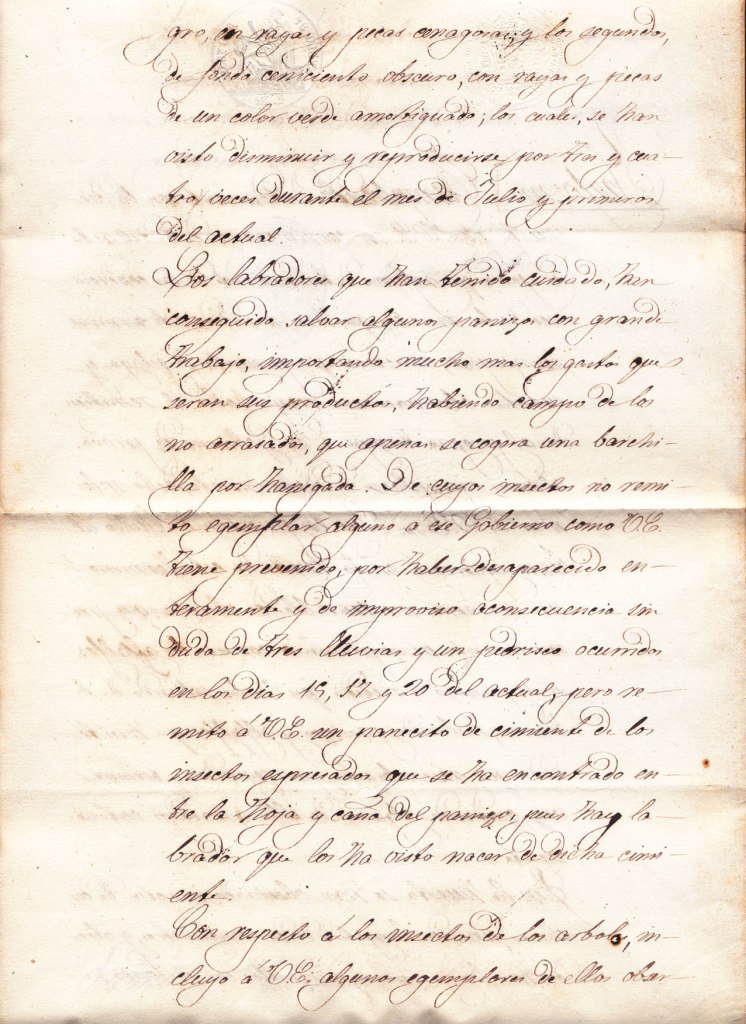 gro, con rayas y pecas conagosas; y los segundos,
de fondo ceniciento obscuro, con rayas y pecas
de un color verde amortiguado; los cuales, se han
visto disminuir y reproducirse por tres y cua-
tro veces durante el mes de Julio y primeros
del actual.
Los labradores que han tenido cuidado, han
conseguido salvar algunos panizos con grande
trabajo, importando mucho mas los gastos que
seran sus productos, habiendo campo de los
no arrasados, que apenas se cogera una barchi-
lla por hanegada. De cuyos insectos no remi-
to egemplar alguno á ese Gobierno como V.E.
tiene prevenido, por haber desaparecido en-
teramente y de improviso aconsecuencia sin
duda de tres lluvias y un pedrisco ocurridos
en los dias 15, 17 y 20 del actual, pero re-
mito á V.E. un panecito de cimiente de los
insectos espresados que se ha encontrado en-
tre la hoja y caña del panizo, pues hay la-
brador que los ha visto nacer de dicha cimi-
ente.
Con respecto á los insectos de los arboles, in-
cluyo á V.E. algunos egemplares de ellos obser-